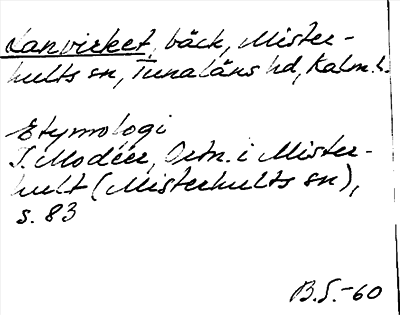 Lanvirket, bäck, Mister-
hults sn, Tunaläns hd, Kalm. l.
Etymologi
I. Modéer, Ortn. i Mister-
hult (Misterhults sn),
s. 83
B.S.-60